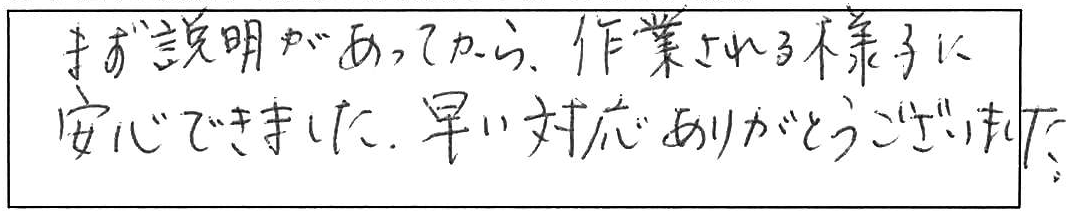 まず説明があってから、作業される様子に
安心できました。早い対応ありがとうございました。